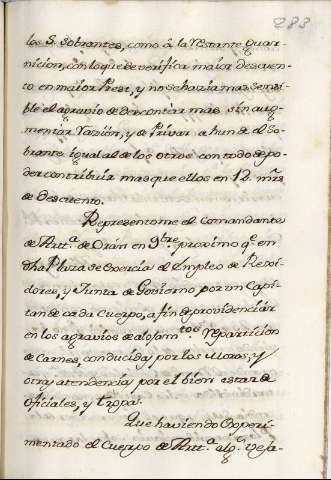 283
los S. Sobrantes, como â la restante Guar-
nicion, con lo que se verifica maior descuen-
to en maior Prest, y no se haria mas sensi-
ble el agravio de descontar mas sin aug-
mentar Razión, y de Privar a hun de el So-
brante igual al de los otros con todo de po-
der contribuir mas que ellos en 12. mrs.
de Descuento.
Representome el Comandante
de Artª. de Orán en 9bre. proximo qe. en
dha Plaza se exercia el Empleo de Rexi-
dores, y Junta de Govierno por un Capi-
tan de cada Cuerpo, a fin de providenciár
en los agravios de alojamtos. repartición
de Carnes, conducida por los Moros, y
otras atendencias por el bien estar de
oficiales, y tropa.
Que haviendo Experi-
mentado el Cuerpo de Artª. algª. veja-